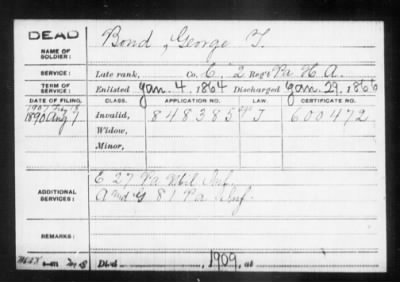 DEAD
NAME OF SOLDIER: Bond, George T.
SERVICE: Late rank, Co. E, 2 Reg't Pa. H. A.
TERM OF SERVICE: Enlisted Jan. 4, 1864 Discharged Jan. 29, 1866
DATE OF FILING. CLASS. APPLICATION NO. LAW. CERTIFICATE NO.
1907
1890 Aug 7 Invalid, 848385 J 600472
Widow,
Minor,
ADDITIONAL SERVICES: E 27 Pa Mil. Inf.
A and G 81 Pa Inf.
REMARKS:
Died , 1909, at